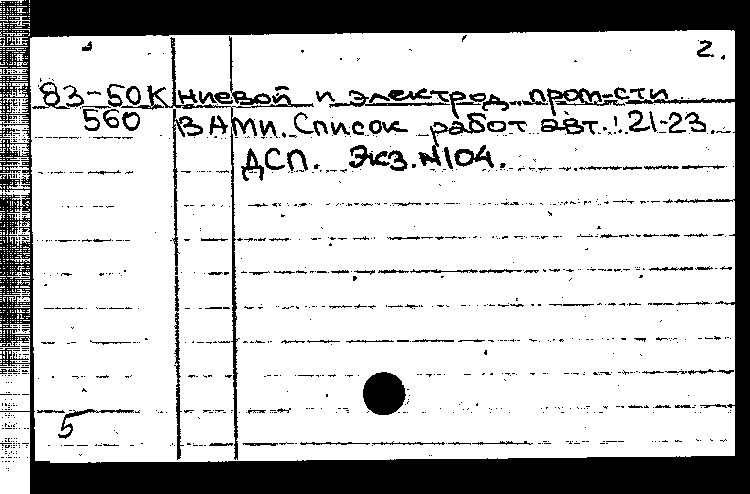 2.
83-50К ниевой и электрод. пром-сти
560 ВАМИ. Список работ авт.: 21-23.
ДСП. Экз.№104.
5